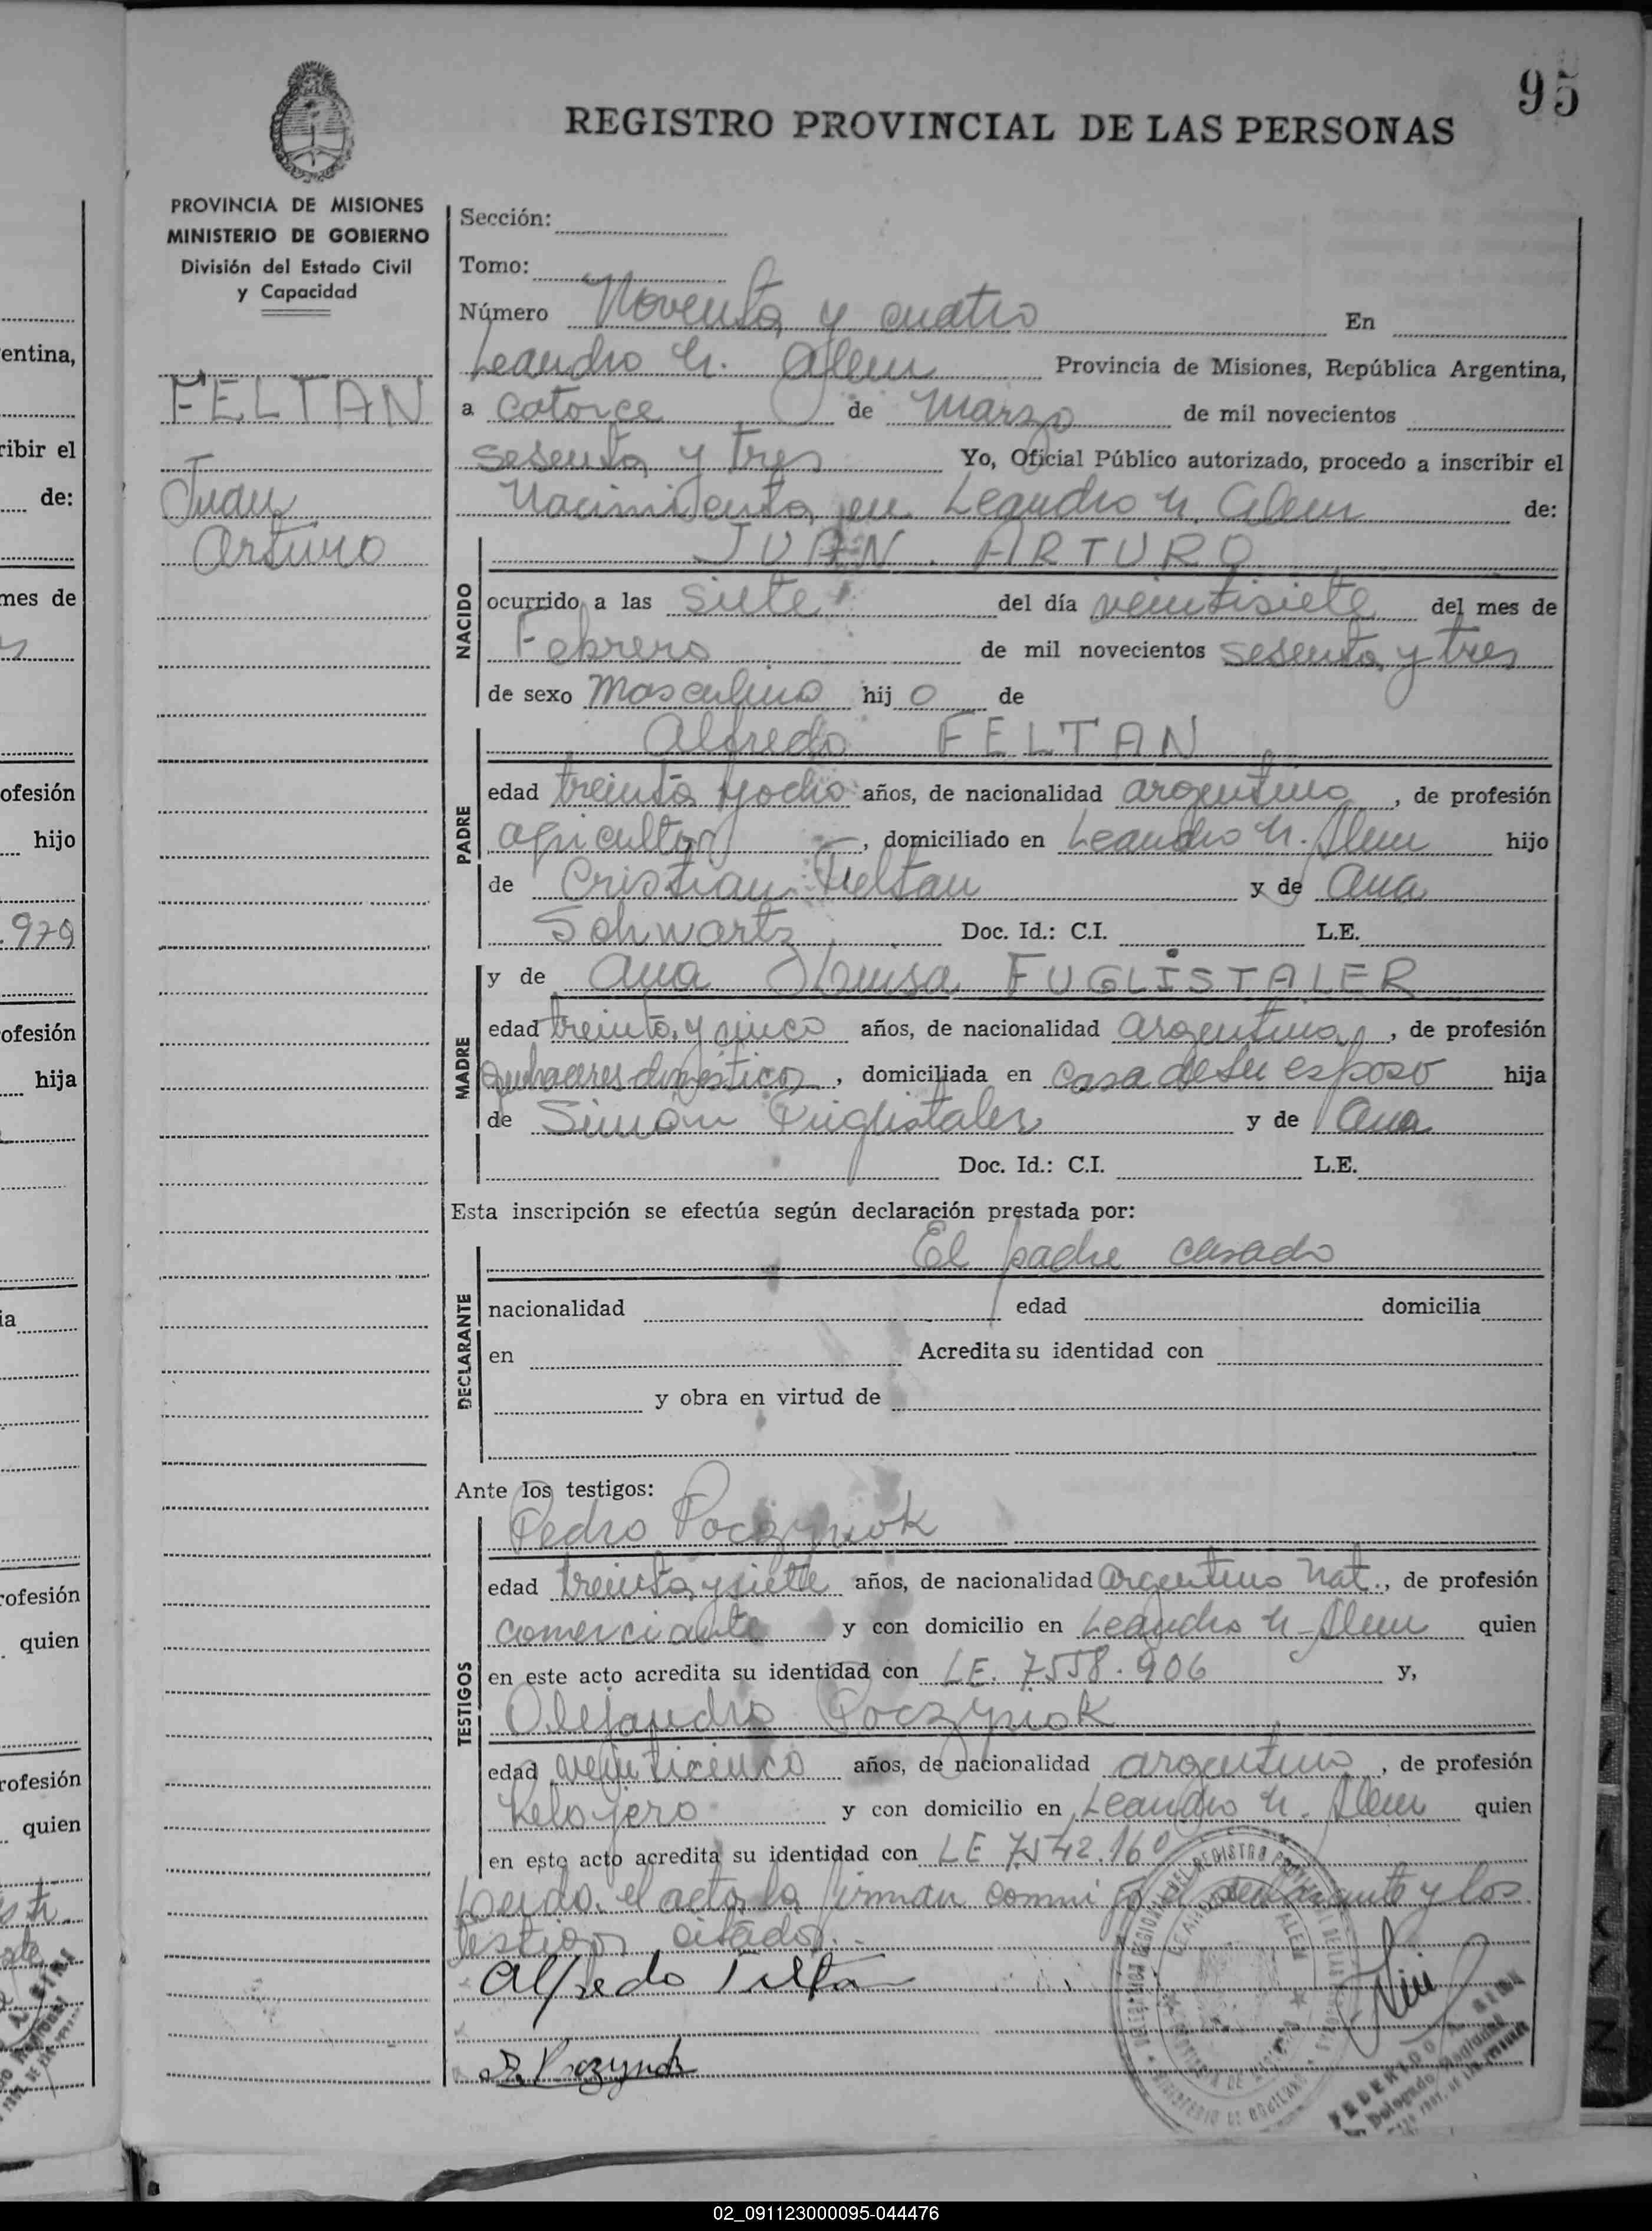 95
REGISTRO PROVINCIAL DE LAS PERSONAS
PROVINCIA DE MISIONES
MINISTERIO DE GOBIERNO
División del Estado Civil
y Capacidad
FELTAN
Juan
Arturo
Sección:
Tomo:
Número Noventa y cuatro En
Leandro N. Alem Provincia de Misiones, República Argentina,
a catorce de Marzo de mil novecientos
sesenta y tres Yo, Oficial Público autorizado, procedo a inscribir el
Nacimiento en Leandro N. Alem de:
NACIDO
JUAN ARTURO
ocurrido a las siete del día veintisiete del mes de
Febrero de mil novecientos sesenta y tres
de sexo Masculino hij o de
PADRE
Alfredo FELTAN
edad treinta y ocho años, de nacionalidad argentino, de profesión
agricultor, domiciliado en Leandro N. Alem hijo
de Cristian Feltan y de Ana
Schwartz Doc. Id.: C.I. L.E.
MADRE
y de Ana Luisa FUGLISTALER
edad treinta y cinco años, de nacionalidad argentina, de profesión
quehaceres domésticos, domiciliada en casa de su esposo hija
de Simón Fuglistaler y de Ana
Doc. Id.: C.I. L.E.
Esta inscripción se efectúa según declaración prestada por:
DECLARANTE
El padre casado
nacionalidad edad domicilia
en Acredita su identidad con
y obra en virtud de
Ante los testigos:
TESTIGOS
Pedro Poczynok
edad treinta y siete años, de nacionalidad argentino Nat., de profesión
comerciante y con domicilio en Leandro N. Alem quien
en este acto acredita su identidad con LE. 7558.906 y,
Alejandro Poczynok
edad veinticinco años, de nacionalidad argentino, de profesión
relojero y con domicilio en Leandro N. Alem quien
en este acto acredita su identidad con LE 7542.160
Leida el acta la firman conmigo el declarante y los
testigos citados.-
Alfredo Felta
Poczynok
entina,
ribir el
de:
mes de
ofesión
hijo
.979
ofesión
hija
ia
rofesión
quien
rofesión
quien
02_091123000095-044476